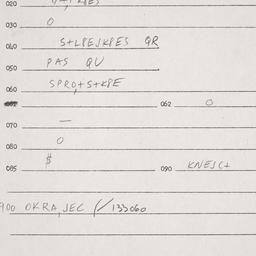 020
030 O
040 S+LPEJKPES QR
050 PAS QU
060 SPRO+S+KPE
062 O
070 —
080 O
085 $ 090 KNEJC+
900 OKRA,SEC 133060